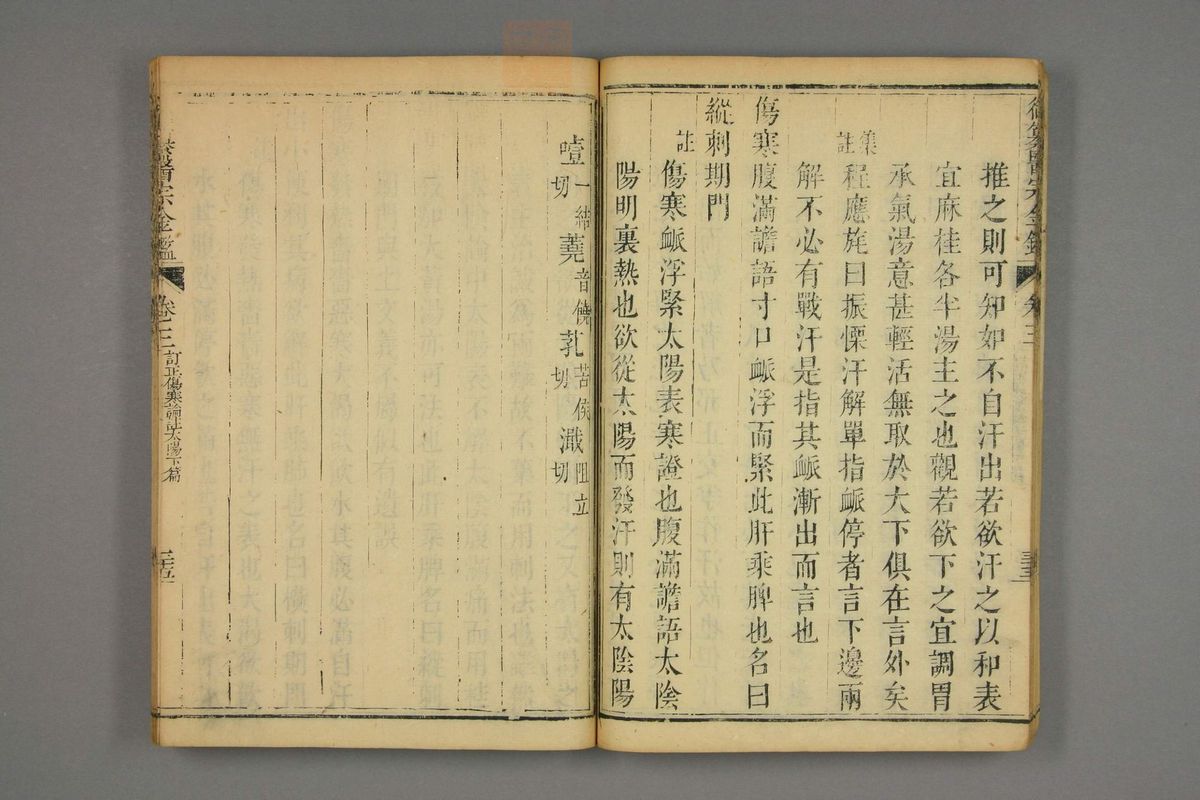 推之則可知如不自汗出若欲汗之以和表
宜麻桂各半湯主之也觀若欲下之宜調胃
承氣湯意甚輕活無取於大下俱在言外矣
集註程應旄曰振慄汗解單指脈停者言下邊兩
解不必有戰汗是指其脈漸出而言也
傷寒腹滿譫語寸口脈浮而緊此肝乘脾也名曰
縱刺期門
註傷寒脈浮緊太陽表寒證也腹滿譫語太陰
陽明裏熱也欲從太陽而發汗則有太陰陽
噎一結切蕘音饒𤴯苦侯切濈阻立切
醫宗金鑑 卷三 訂正傷寒論註太陽下篇